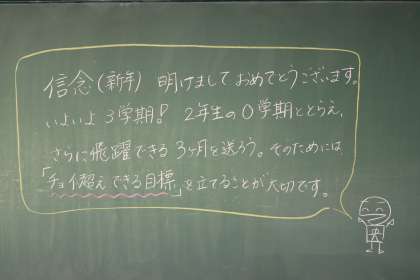 信念(新年) 明けましておめでとうございます。
いよいよ3学期! 2年生の0学期ととらえ、
さらに飛躍できる3ヶ月を送ろう。そのためには
「チョイ超えできる目標」を立てることが大切です。